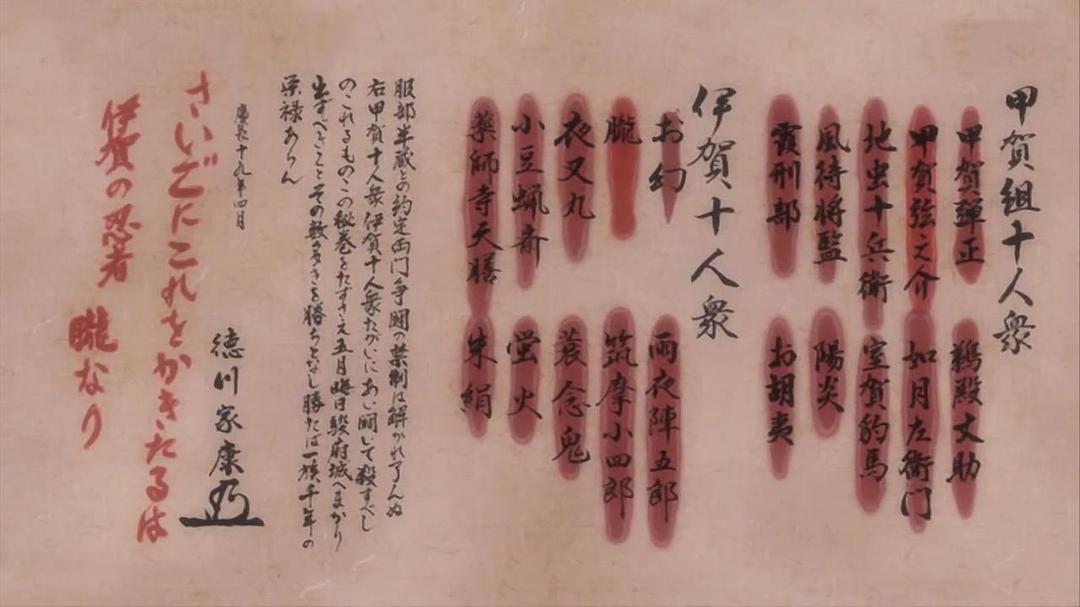 甲賀組十人衆
甲賀弾正
甲賀弦之介
地虫十兵衛
風待将監
霞刑部
鵜殿丈助
如月左衛門
室賀豹馬
陽炎
お胡夷
伊賀十人衆
お幻
朧
夜叉丸
小豆蝋斎
薬師寺天膳
雨夜陣五郎
筑摩小四郎
蓑念鬼
蛍火
朱絹
服部半蔵との約定両門争闘の禁制は解かれ了んぬ
右甲賀十人衆伊賀十人衆たがいにあい闘いて殺すべし
のこれるものこの秘巻をたずさえ五月晦日駿府城へまかり
出ずべきことその数多きを勝ちとなし勝たば一族千年の
栄禄あらん
慶長十九年四月
徳川家康
さいごにこれをかきたるは
伊賀の忍者 朧なり